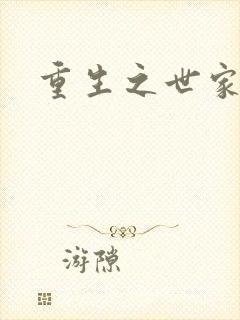 重生之世家
游隙